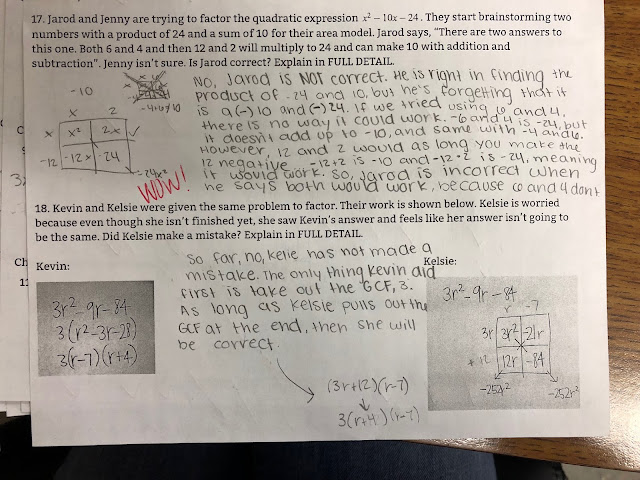 17. Jarod and Jenny are trying to factor the quadratic expression x² – 10x – 24. They start brainstorming two
numbers with a product of 24 and a sum of 10 for their area model. Jarod says, "There are two answers to
this one. Both 6 and 4 and then 12 and 2 will multiply to 24 and can make 10 with addition and
subtraction". Jenny isn't sure. Is Jarod correct? Explain in FULL DETAIL.
-10
x 2
x x² 2x
-12 -12x -24
-24x²
-4+6≠10
NO, Jarod is NOT correct. He is right in finding the
product of -24 and 10, but he's forgetting that it
is a(-)10 and (-)24. If we tried using 6 and 4,
there is no way it could work. -6 and 4 is -24, but
it doesn't add up to -10, and same with -4 and 6.
However, 12 and 2 would as long you make the
12 negative. -12+2 is -10 and -12·2 is -24, meaning
it would work. So, Jarod is incorrect when
he says both would work, because 6 and 4 dont
WOW!
18. Kevin and Kelsie were given the same problem to factor. Their work is shown below. Kelsie is worried
because even though she isn't finished yet, she saw Kevin's answer and feels like her answer isn't going to
be the same. Did Kelsie make a mistake? Explain in FULL DETAIL.
Kevin:
3r²-9r-84
3(r²-3r-28)
3(r-7)(r+4)
So far, no, kelie has not made a
mistake. The only thing Kevin did
first is take out the GCF, 3.
As long as Kelsie pulls out the
GCF at the end, then she will
be correct.
(3r+12)(r-7)
3(r+4)(r-7)
Kelsie:
3r²-9r-84
r -7
3r 3r² -21r
+12 12r -84
-252r² -252r²
Ch
11